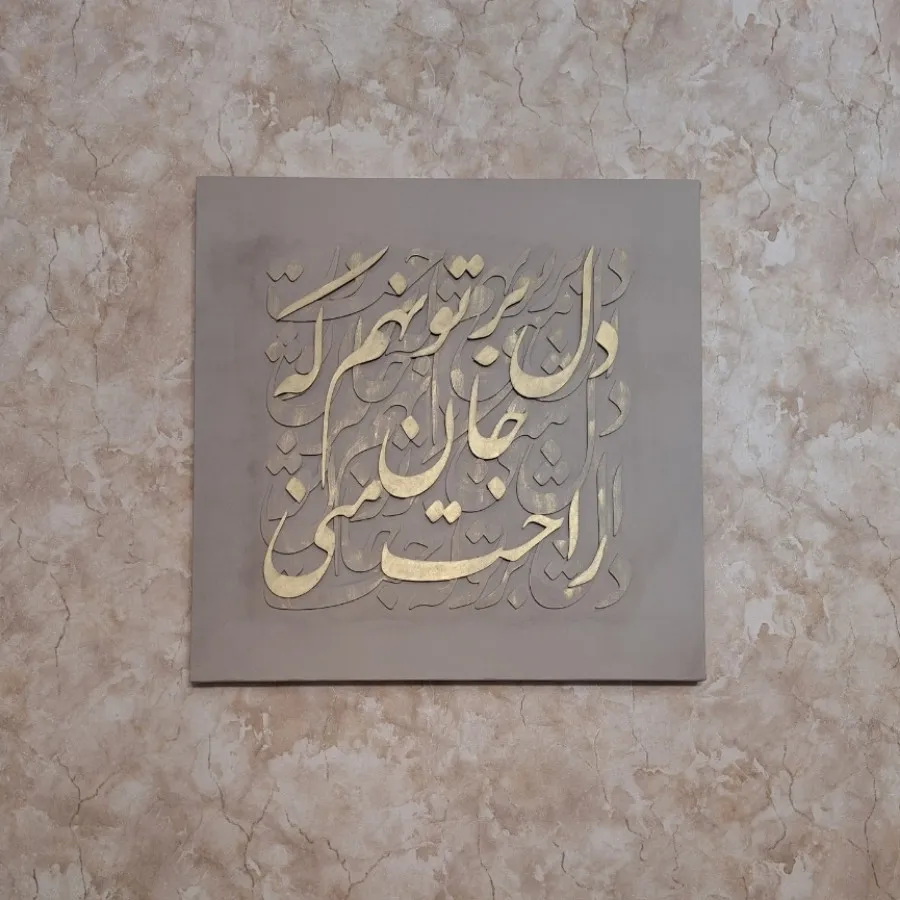 دل بر تو نهم که
راحت جان منی